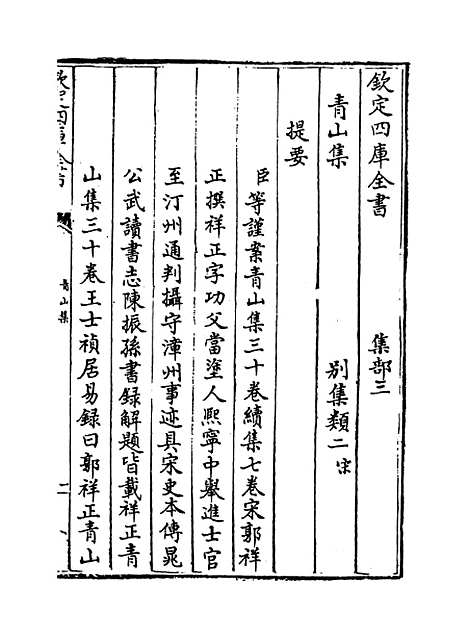 欽定四庫全書
集部三
青山集
別集類二宋
提要
臣等謹案青山集三十卷續集七卷宋郭祥
正撰祥正字功父當塗人熙寧中舉進士官
至汀州通判攝守漳州事迹具宋史本傳晁
公武讀書志陳振孫書錄解題皆載祥正青
山集三十卷王士禎居易錄曰郭祥正青山
欽定四庫全書
青山集